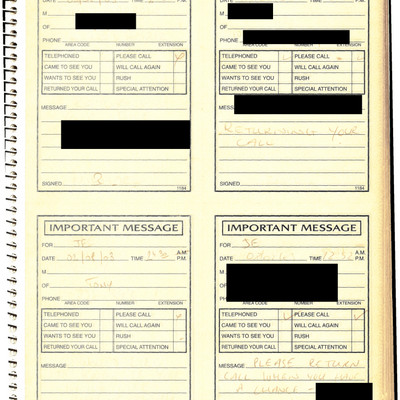 DATE TIME P.M.
M
OF
PHONE
AREA CODE NUMBER EXTENSION
TELEPHONED PLEASE CALL
CAME TO SEE YOU WILL CALL AGAIN
WANTS TO SEE YOU RUSH
RETURNED YOUR CALL SPECIAL ATTENTION
MESSAGE
SIGNED B 1184
DATE TIME P.M.
M
OF
PHONE
AREA CODE NUMBER EXTENSION
TELEPHONED PLEASE CALL
CAME TO SEE YOU WILL CALL AGAIN
WANTS TO SEE YOU RUSH
RETURNED YOUR CALL SPECIAL ATTENTION
MESSAGE
RETURNING YOUR
CALL.
SIGNED 1184
IMPORTANT MESSAGE
FOR JE
A.M.
DATE TIME P.M.
M
OF Tony
PHONE
AREA CODE NUMBER EXTENSION
TELEPHONED PLEASE CALL
CAME TO SEE YOU WILL CALL AGAIN
WANTS TO SEE YOU RUSH
RETURNED YOUR CALL SPECIAL ATTENTION
MESSAGE
IMPORTANT MESSAGE
FOR JE
A.M.
DATE TIME P.M.
M
OF
PHONE
AREA CODE NUMBER EXTENSION
TELEPHONED PLEASE CALL
CAME TO SEE YOU WILL CALL AGAIN
WANTS TO SEE YOU RUSH
RETURNED YOUR CALL SPECIAL ATTENTION
MESSAGE PLEASE RETURN
CALL WHEN YOU HAVE
A CHANCE -